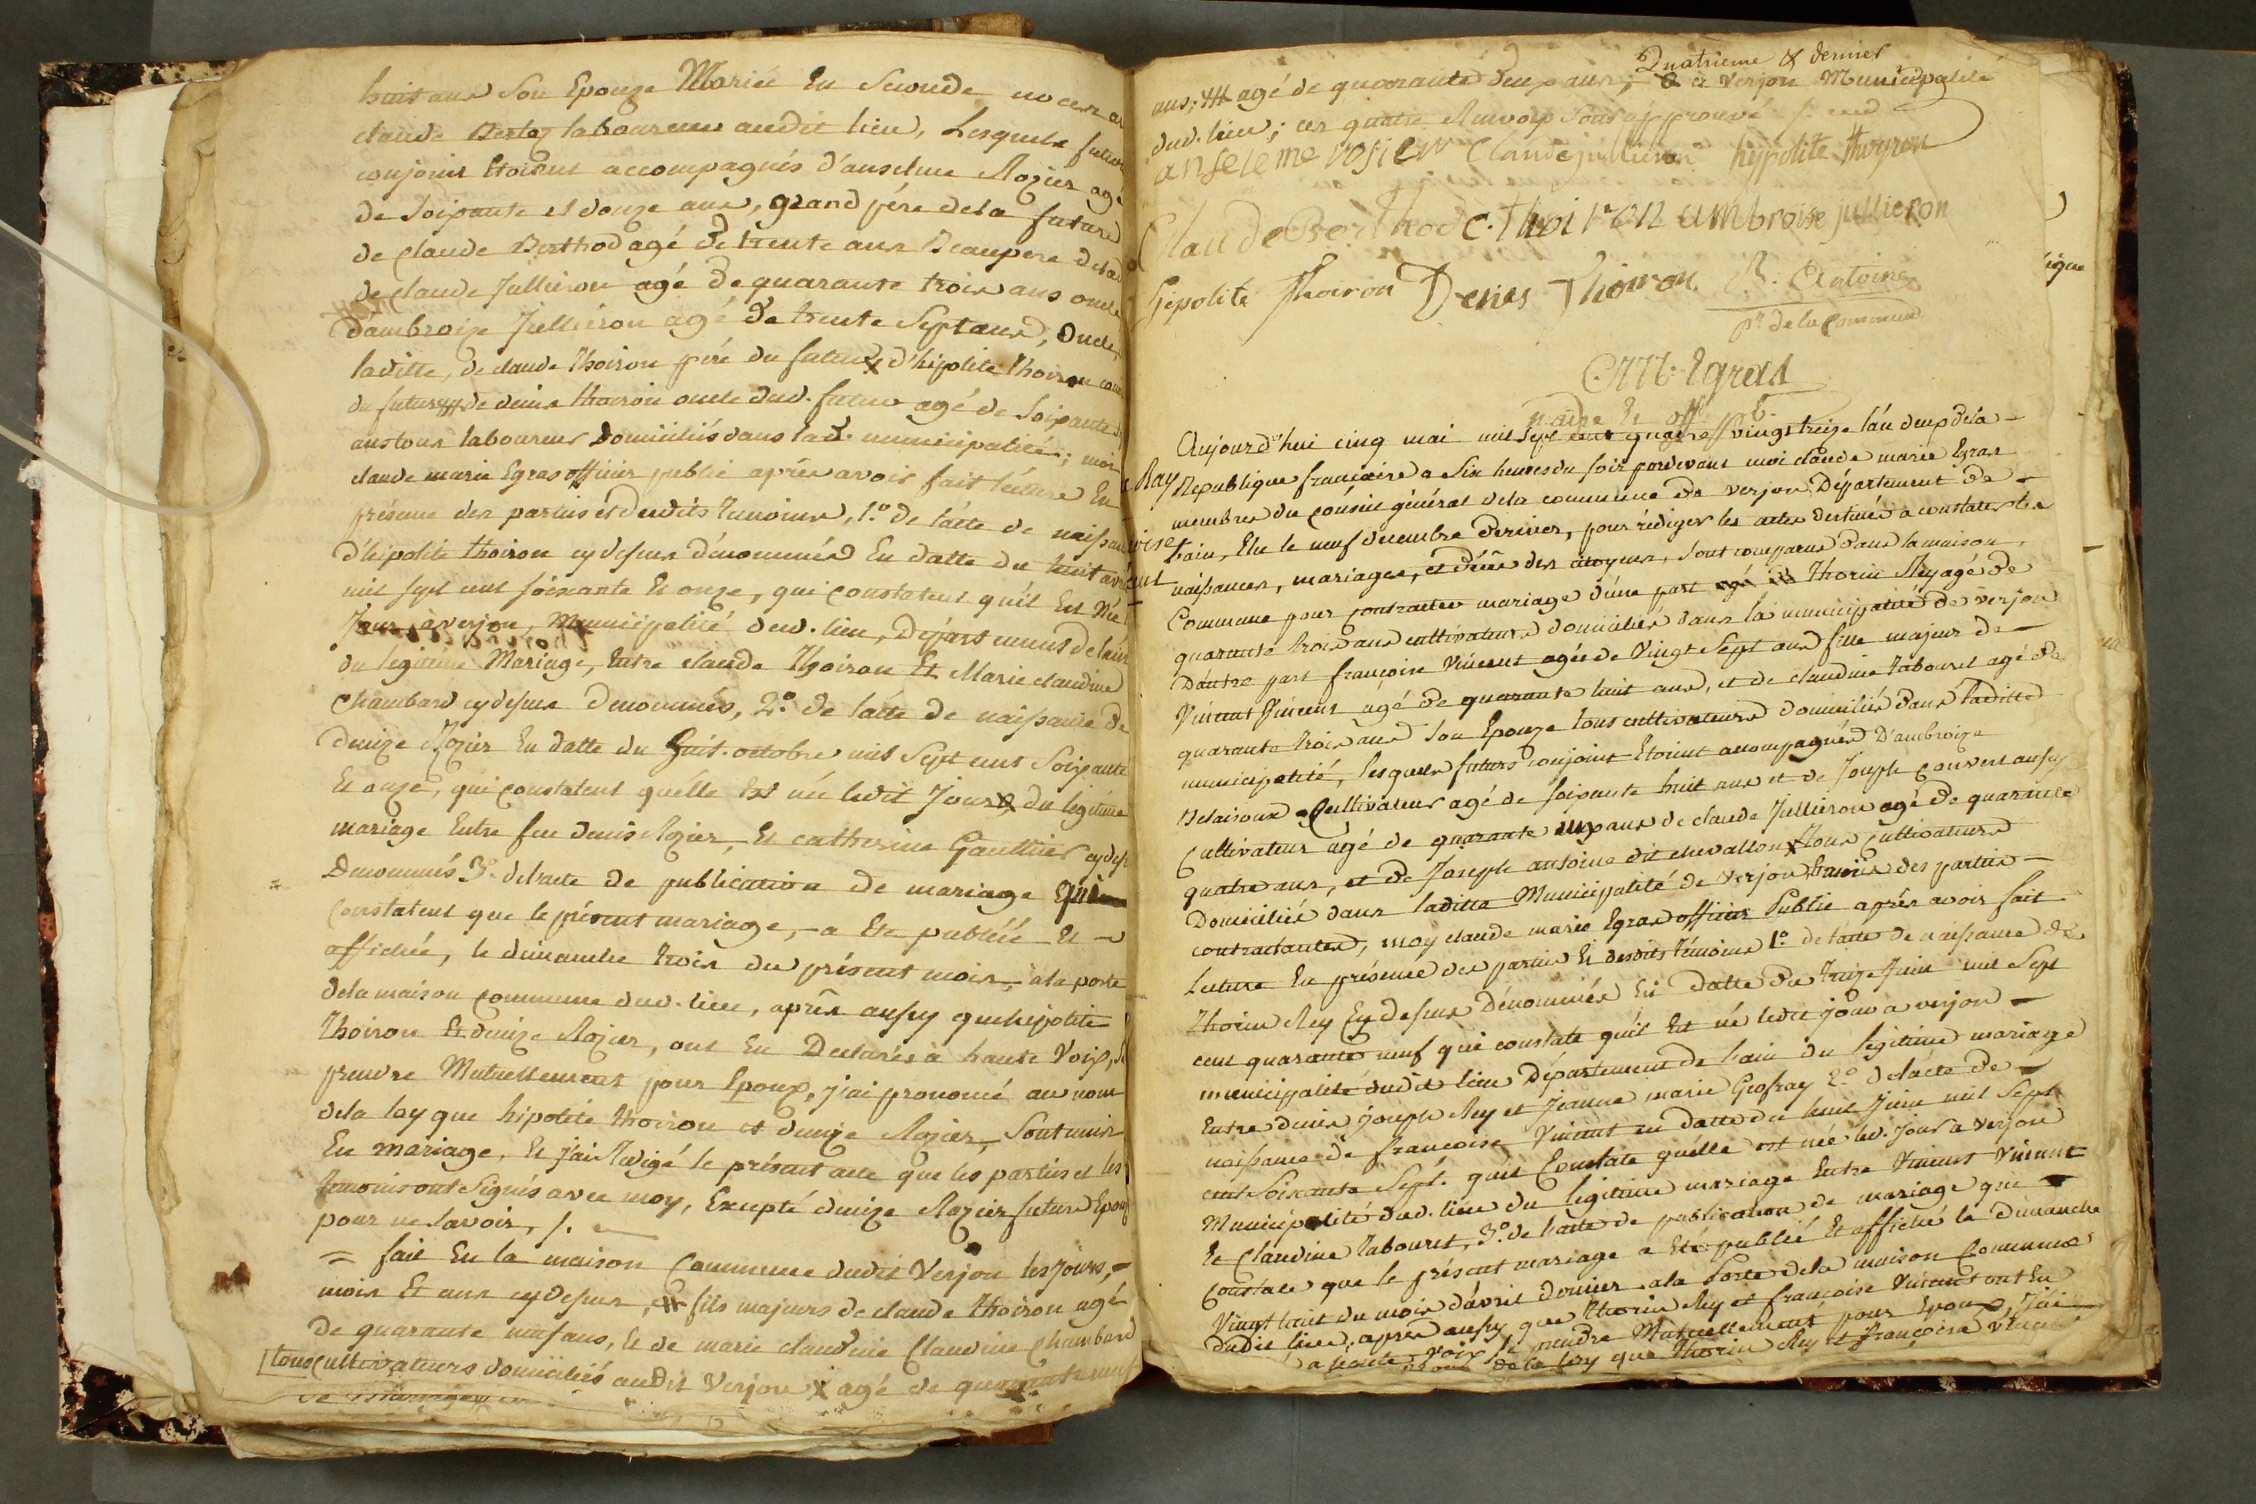 huit ans Son Epouze Mariée En Seconde noces a
claude Bertod laboureur audit lieu, Lesquels futurs
conjoint Etoient accompagnés d'anselme Rozier agé
de Soixante et douze ans, grand père de la future
de claude Berthod agé de trente ans Beaupere de lad
de claude Jullieron agé de quarante trois ans oncle
d'ambroize Jullieron agé de trente Sept ans, Oncle
laditte, de claude Thoiron père du futur x d'hipolite Thoiron
du futur de denis thoiron oncle dud. futur agé de Soixante
ans tous laboureurs Domiciliés dans lad. municipalité; moi
claude marie Egras officier public après avoir fait lecture En
présence des parties et desdits temoins, 1.º de l'acte de naissance
d'hipolite thoiron cy dessus dénommés En datte du huit avril
mil sept cent soixante Et onze, qui constatent qu'il Est Né
Jour, à verjon, Municipalité dud. lieu, Departement de lain
du legitime Mariage, Entre claude Thoiron Et Marie claudine
Chambard cy dessus denommés, 2.º de l'acte de naissance de
denize Rozier En datte du huit octobre mil Sept cent Soixante
Et onze, qui constatent qu'elle Est née ledit Jour du legitime
mariage Entre feu denis Rozier, Et catherine Gaultier cy dess
Denommés 3.º de l'acte de publication de mariage qui
Constatent que le présent mariage, a Ete publiéé Et
affichée, le dimanche trois du présent mois, a la porte
dela maison commune dud. lieu, après aussy que hipolite
Thoiron Et denize Rozier, ont Eu Declarés à haute Voix, Se
prendre Mutuellement pour Epoux, j'ai prononcé au nom
dela loy que hipolite thoiron et denize Rozier, Sont unis
En mariage, Et j'ai Redigé le présent acte que les parties et les
temoins ont Signés avec moy, Excepté denize Rozier future Epouze
pour ne Savoir, /.
= fait En la maison Commune dudit Verjon les jours,
mois Et ans cy dessus, fils majeurs de claude thoiron agé
de quarante neuf ans, Et de marie claudine Claudine Chambard
tous cultivateurs domiciliés audit Verjon x agé de quarante neuf
Quatrieme & dernier
ans; agé de quarante deux ans; à Verjon Municipalité
dud. lieu; ces quatre Renvoix Sont approuvé /.
anseleme rosier Claude jullieron hypolite thoyron
Claude Berthod c. thoiron ambroise jullieron
hepolite Thoiron Denis Thoiron B. Antoine
pr de la Commune
C. M. Egras
maire Et off. p.
Aujourd'hui cinq mai mil Sept cent quatre vingt treize l'an deux de la
Republique française a Six heures du soir pardevant moi claude marie Egras
membre du conseil général de la commune de verjon Département de
lain, Elu le neuf decembre dernier, pour rédiger les actes destinés a constater les
naissances, mariages, et décès des citoyens, sont comparus dans la maison
Commune pour contracter mariage d'une part Thorin Rey agé de
quarante trois ans cultivateurs domiciliés dans la municipalité de verjon
D'autre part françoise Vincent agée de Vingt Sept ans fille majeur de
Vincent Vincent agé de quarante huit ans, et de claudine Tabouret agé de
quarante trois ans Son Epouze tous cultivateurs domiciliés dans laditte
municipalité, lesquels futurs conjoint Etoient accompagnés D'ambroize
Delaisoux Cultivateur agé de soixante huit ans et de Joseph Convert aussy
Cultivateur agé de quarante six ans de claude Jullieron agé de quarante
quatre ans, et de Joseph antoine dit chevallon tous Cultivateurs
Domiciliés dans laditte Municipalité de Verjon temoins des parties
contractantes, moy claude marie Egras officier Public après avoir fait
Lecture En présence des parties Et desdits témoins 1.º de l'acte de naissance de
Thorin Rey Cy dessus Dénommés En datte du treize Juin mil Sept
cent quarante neuf qui constate qu'il Est né ledit jour a verjon
municipalité dudit lieu Département de lain du légitime mariage
Entre denis joseph Rey et Jeanne marie Geofray 2.º de l'acte de
naissance de françoise Vincent en datte du huit Juin mil Sept
cent Soixante Sept. qui Constate qu'elle est née led. Jour a Verjon
Municipalité dud. lieu du legitime mariage Entre Vincent Vincent
Et Claudine Tabouret, 3.º de l'acte de publication de mariage que
Constate que le présent mariage a Eté publié Et affiché le dimanche
Vingt huit du mois d'avril dernier a la Porte dela maison Commune
Dudit lieu, après aussy que Thorin Rey et françoise Vincent ont Eu
a haute voix Se prendre Mutuellement pour Epoux, J'ai
de la loy que Thorin Rey et françoise vincent